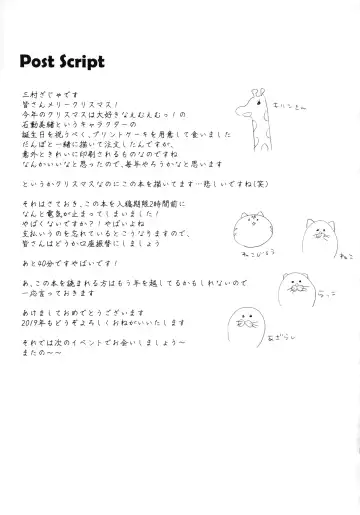 Post Script
三村ざじゃです
皆さんメリークリスマス!
今年のクリスマスは大好きなえむえむっ!の
石動美緒というキャラクターの
誕生日を祝うべく、プリントケーキを用意して食いました
だんぼと一緒に描いて注文したんですが、
意外ときれいに印刷されるものなのですね
なんかいいなと思ったので、毎年やろうかなと思います
というかクリスマスなのにこの本を描いてます…悲しいですね(笑)
それはさておき、この本を入稿期限2時間前に
なんと電気が止まってしまいました!
やばくないですか?!やばいよね
支払いうのを忘れているとこうなりますので、
皆さんはどうか口座振替にしましょう
あと40分ですやばいです!
あ、この本を読まれる方はもう年を越してるかもしれないので
一応言っておきます
あけましておめでとうございます
2019年もどうぞよろしくおねがいいたします
それでは次のイベントでお会いしましょう~
またの~~
きりんさん
ねこひょう
ねこ
らっこ
あざらし